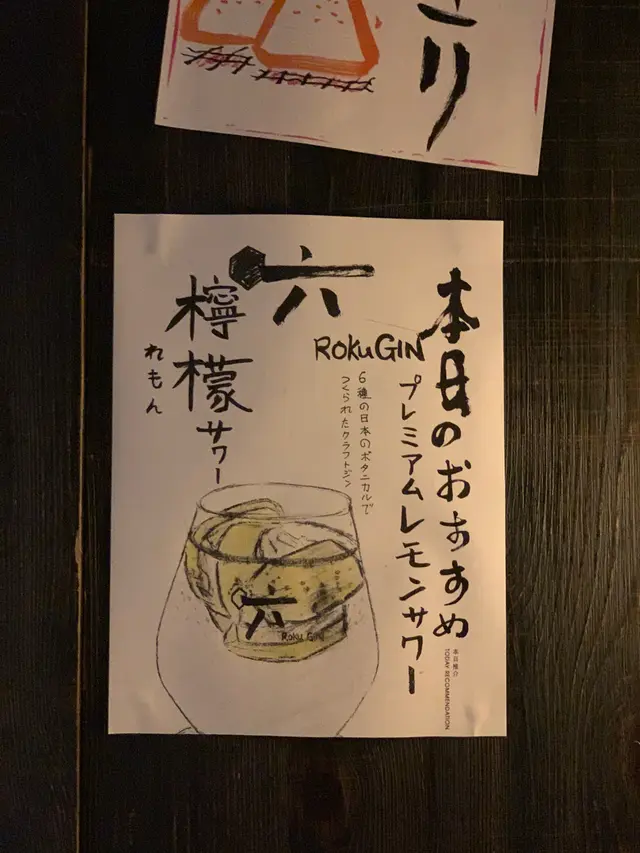 り
本日のおすすめ
本日推介
TODAY RECOMMENDATION
プレミアムレモンサワー
六
ROKU GIN
6種の日本のボタニカルで
つくられたクラフトジン
檸檬サワー
れもん
六
ROKU GIN